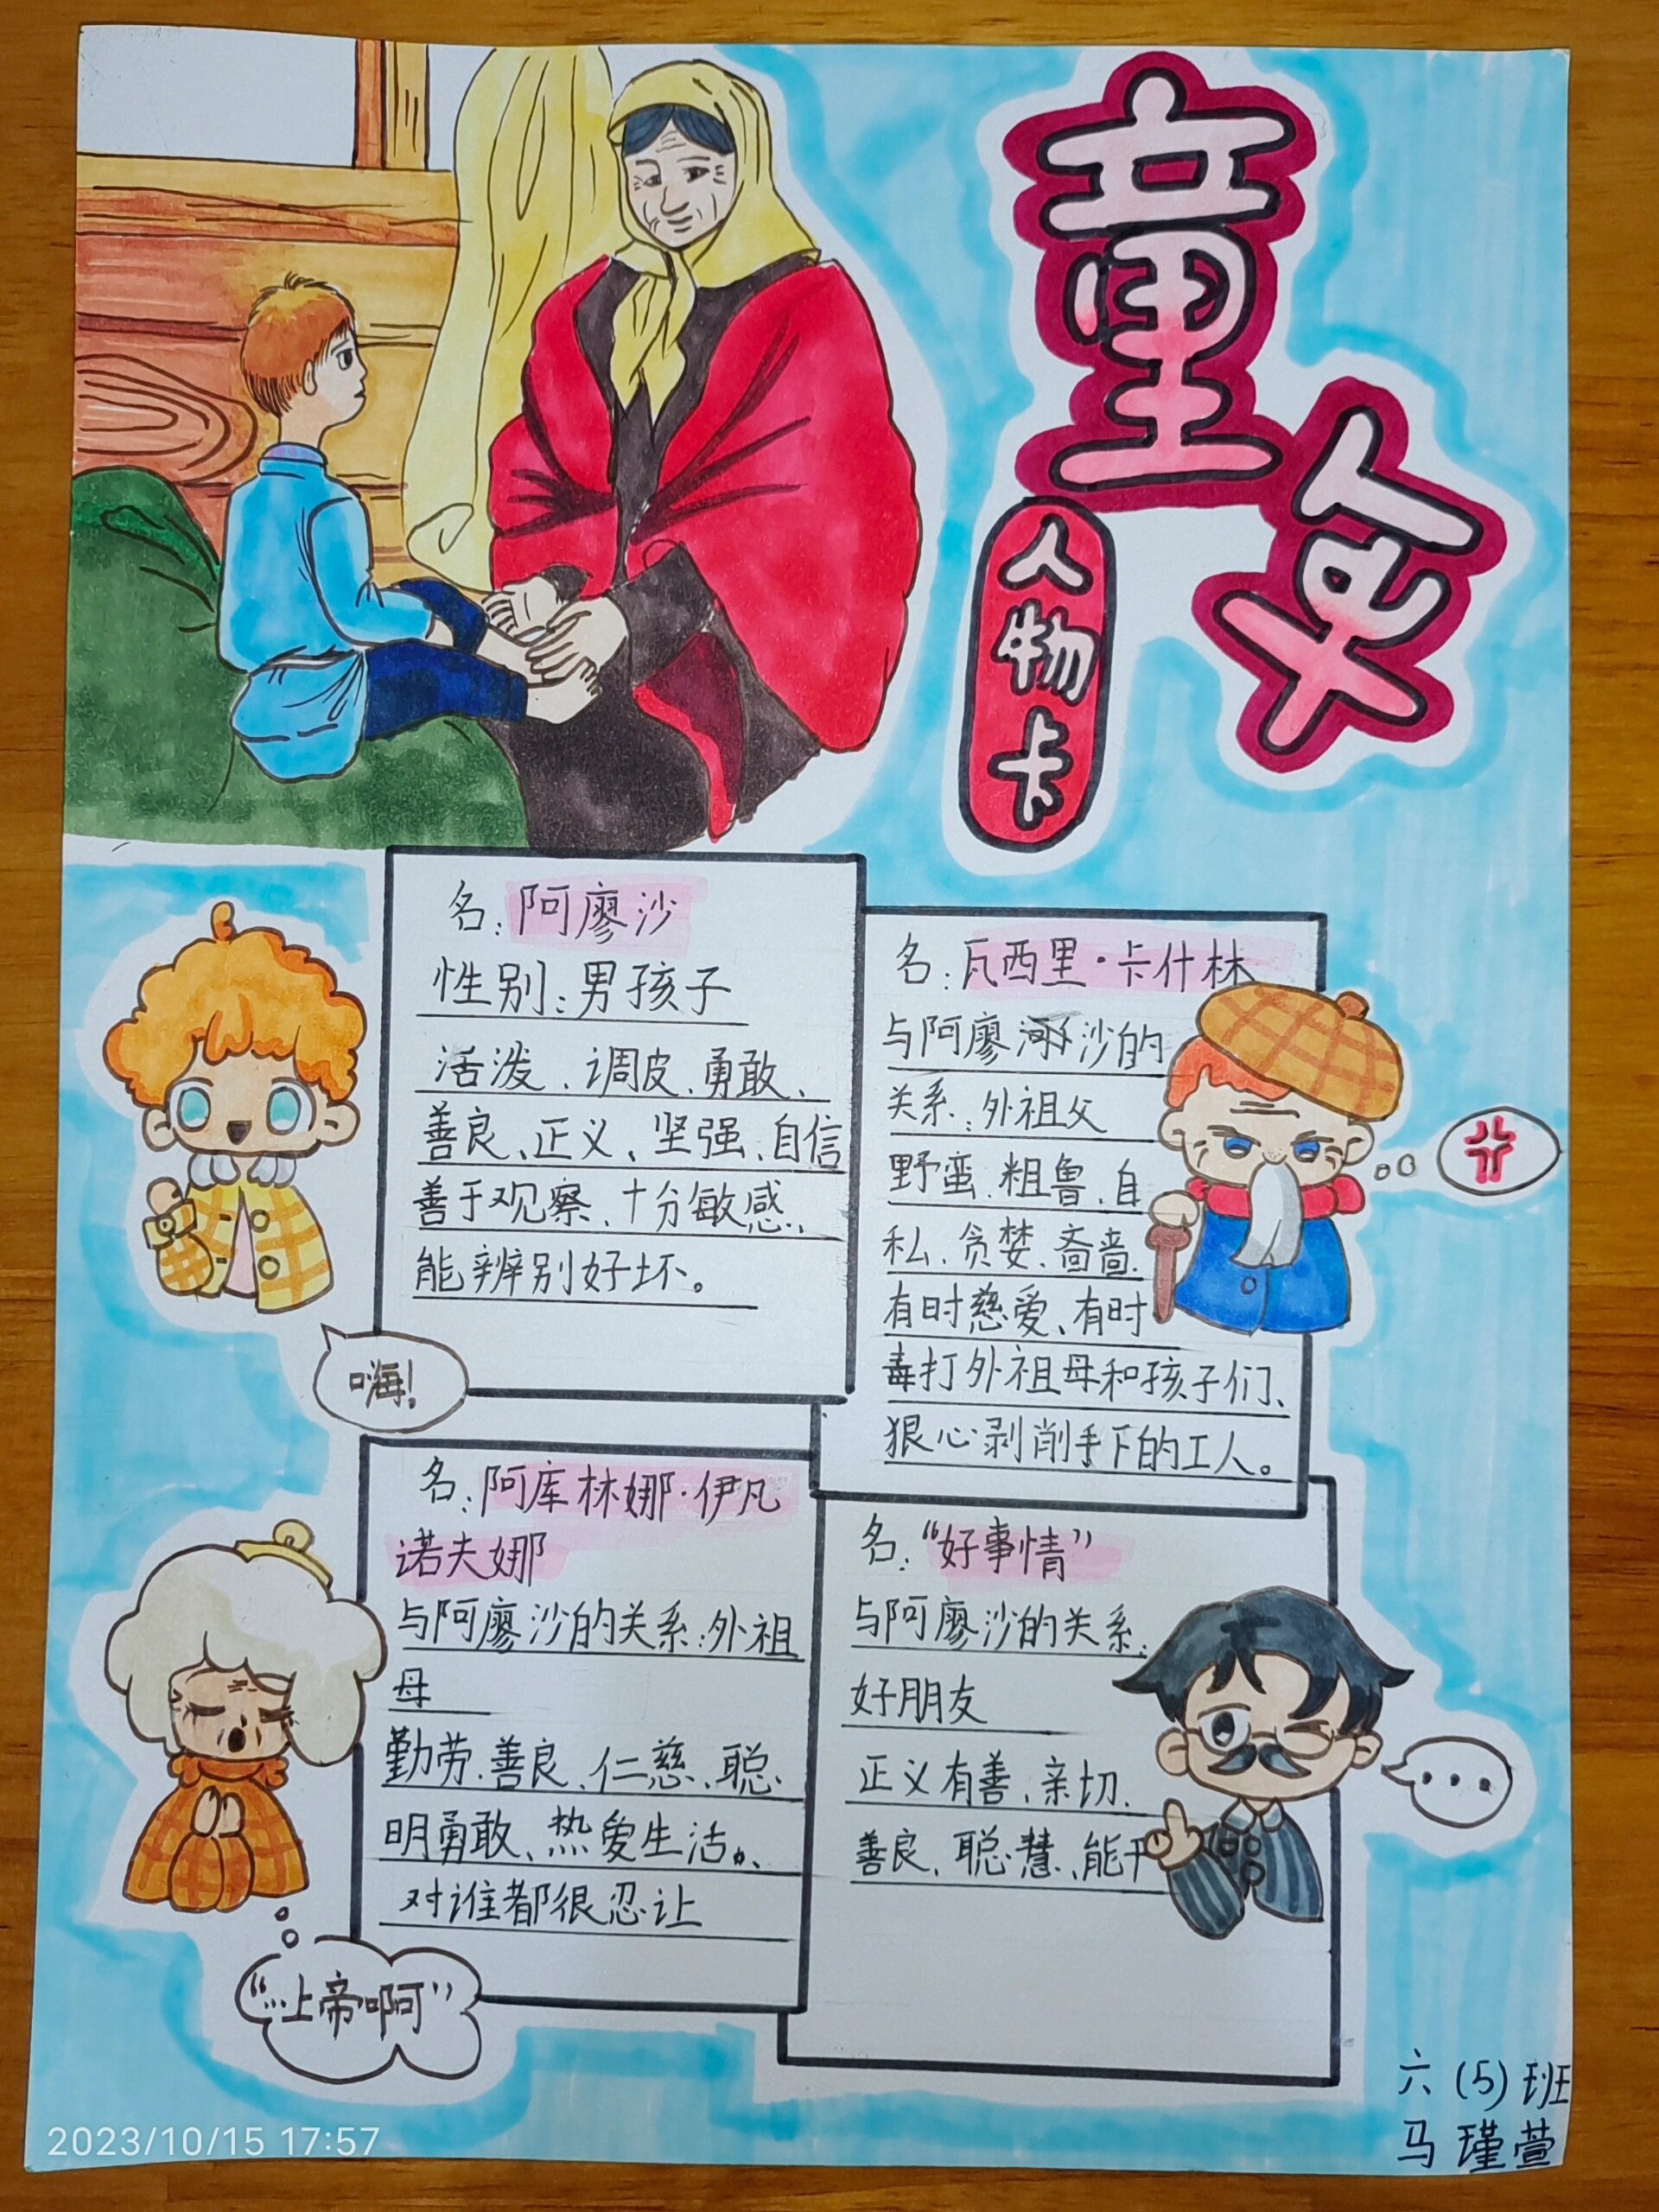 童年
人物卡
名：阿廖沙
性别：男孩子
活泼、调皮、勇敢、
善良、正义、坚强、自信
善于观察、十分敏感、
能辨别好坏。
嗨！
名：瓦西里·卡什林
与阿廖沙的
关系：外祖父
野蛮、粗鲁、自
私、贪婪、吝啬、
有时慈爱、有时
毒打外祖母和孩子们、
狠心剥削手下的工人。
名：阿库林娜·伊凡
诺夫娜
与阿廖沙的关系：外祖
母
勤劳、善良、仁慈、聪
明勇敢、热爱生活、
对谁都很忍让
“上帝啊”
名：“好事情”
与阿廖沙的关系：
好朋友
正义有善、亲切、
善良、聪慧、能干
...
六（5）班
马瑾萱
2023/10/15 17:57